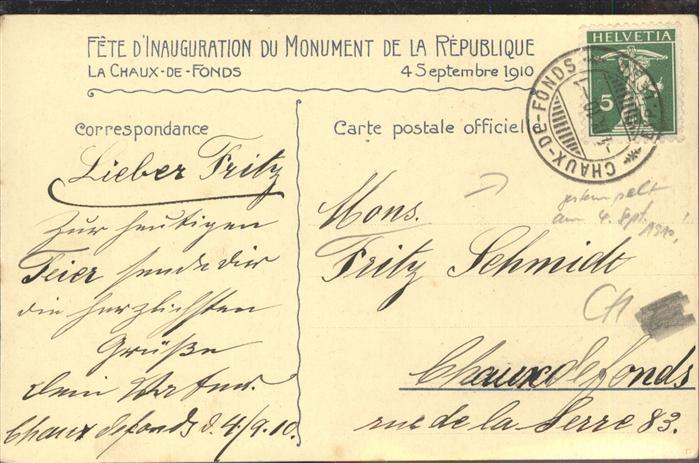 FÊTE D'INAUGURATION DU MONUMENT DE LA RÉPUBLIQUE
LA CHAUX-DE-FONDS 4 Septembre 1910
HELVETIA
5
CHAUX-DE-FONDS
Correspondance
Lieber Fritz
Zur heutigen
Feier sende dir
die herzlichsten
Grüße
dein Vater.
Chaux defonds d. 4/9.10.
Carte postale officielle
gestempelt
am 4. Sept. 1910!
Mons.
Fritz Schmidt
CH
Chaux de fonds
rue de la Serre 83.